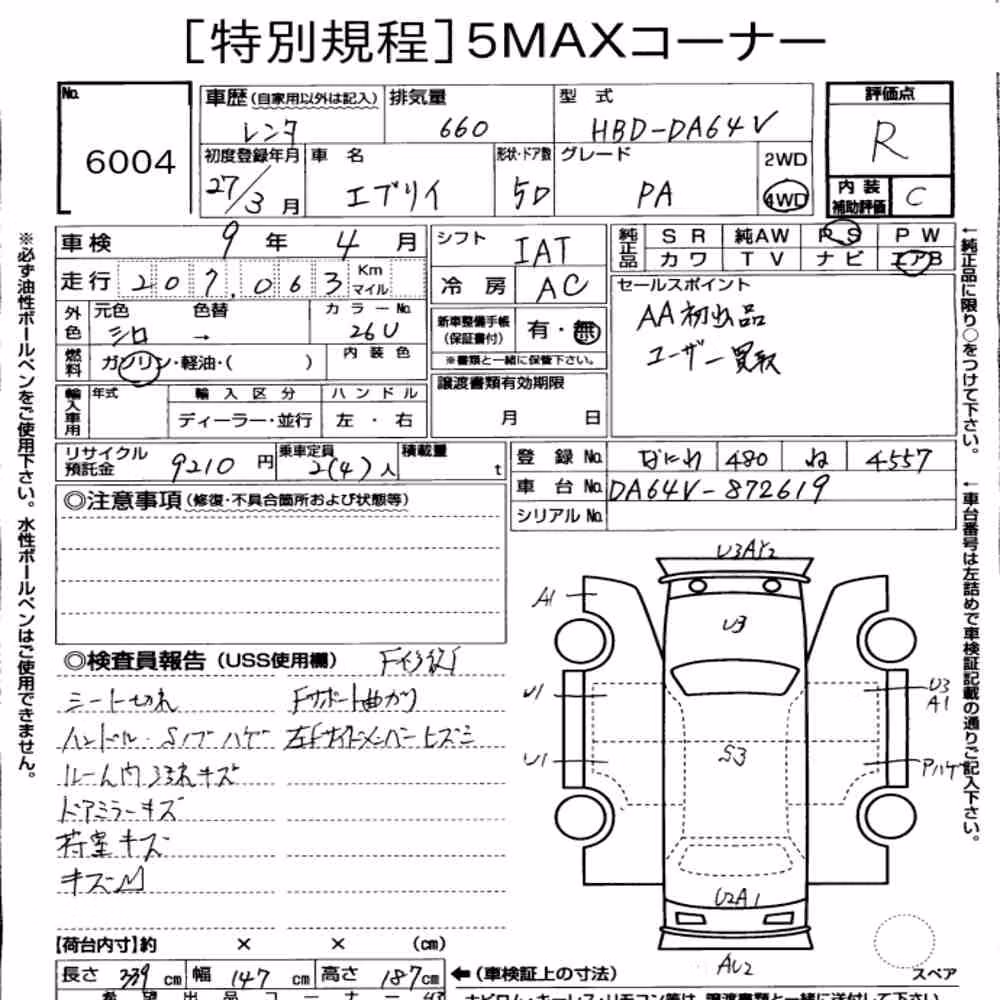 [特別規程]5MAXコーナー
No. 6004
車歴(自家用以外は記入) レンタ
排気量 660
型式 HBD-DA64V
評価点 R
初度登録年月 27/3月
車名 エブリイ
形状・ドア数 5D
グレード PA
2WD
4WD
内装補助評価 C
車検 9年4月
走行 207,063 Km マイル
外色 元色 シロ 色替 → カラーNo. 26U
燃料 ガソリン・軽油・( ) 内装色
輸入車用 年式 輸入区分 ディーラー・並行 ハンドル 左・右
シフト IAT
冷房 AC
新車整備手帳(保証書付) 有・無
※書類と一緒に保管下さい。
譲渡書類有効期限
月 日
純正品 SR 純AW PS PW
カワ TV ナビ エアB
セールスポイント
AA初出品
ユーザー買取
リサイクル預託金 9210円
乗車定員 2(4)人
積載量 t
登録No. なにわ 480 ね 4557
車台No. DA64V-872619
シリアルNo.
◎注意事項(修復・不具合箇所および状態等)
◎検査員報告(USS使用欄) F修復
シート切れ Fサポート曲がり
ハンドル・Sノブハゲ 左Fサイドメンバーヒズミ
ルーム内ヨゴレキズ
ドアミラーキズ
荷室キズ
キズ凹
U3AY2
A1
U3
U1
U3
A1
S3
U1
Pハゲ
U2A1
AU2
スペア
【荷台内寸】約 × × (cm)
長さ 339cm 幅 147cm 高さ 187cm
←(車検証上の寸法)
※必ず油性ボールペンをご使用下さい。水性ボールペンはご使用できません。
←純正品に限り○をつけて下さい。
←車台番号は左詰めで車検証記載の通りご記入下さい。